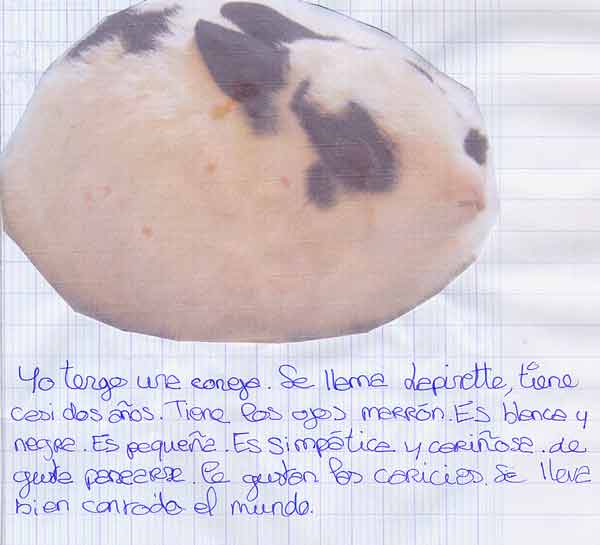 Yo tengo una coneja. Se llama Lapinette, tiene
casi dos años. Tiene los ojos marrón. Es blanca y
negra. Es pequeña. Es simpática y cariñosa. Le
gusta pasearse. Le gustan las caricias. Se lleva
bien con todo el mundo.